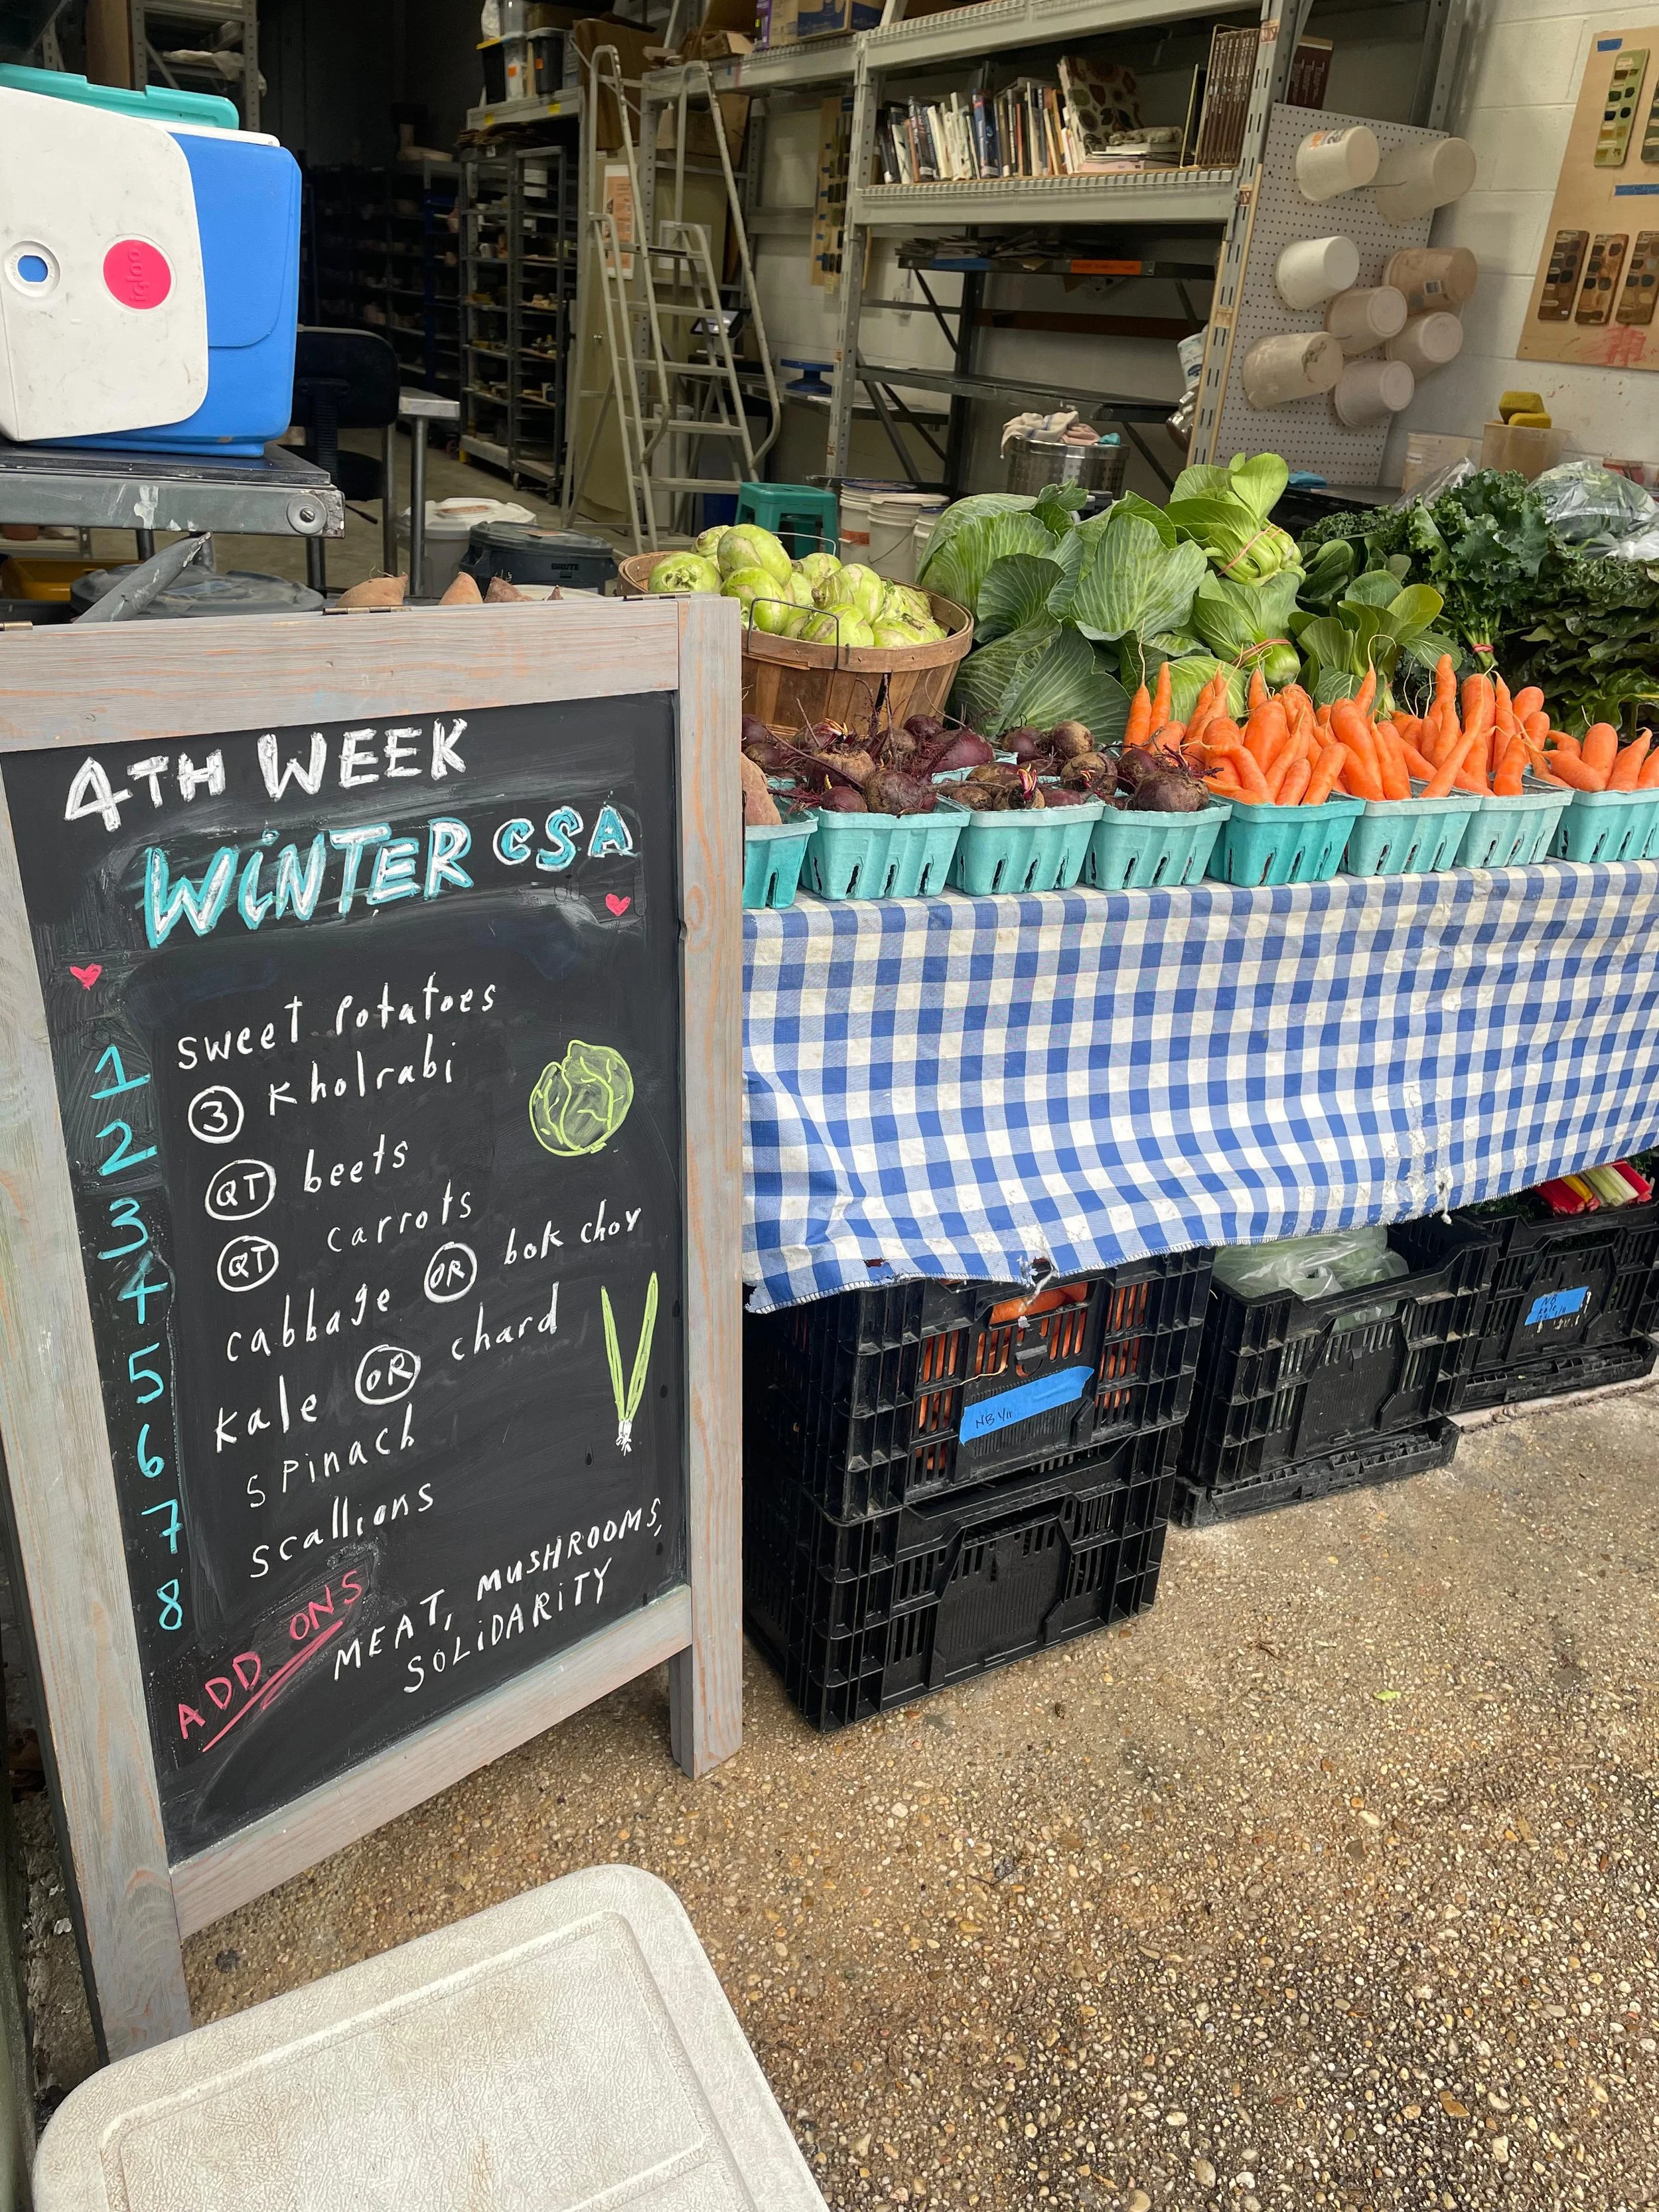 igloo
BRUTE
4TH WEEK
WINTER CSA
1 sweet potatoes
2 3 Kholrabi
3 QT beets
4 QT carrots
5 cabbage OR bok choy
6 Kale OR chard
7 spinach
8 scallions
ADD ONS
MEAT, MUSHROOMS,
SOLIDARITY
NB 1/11
NB